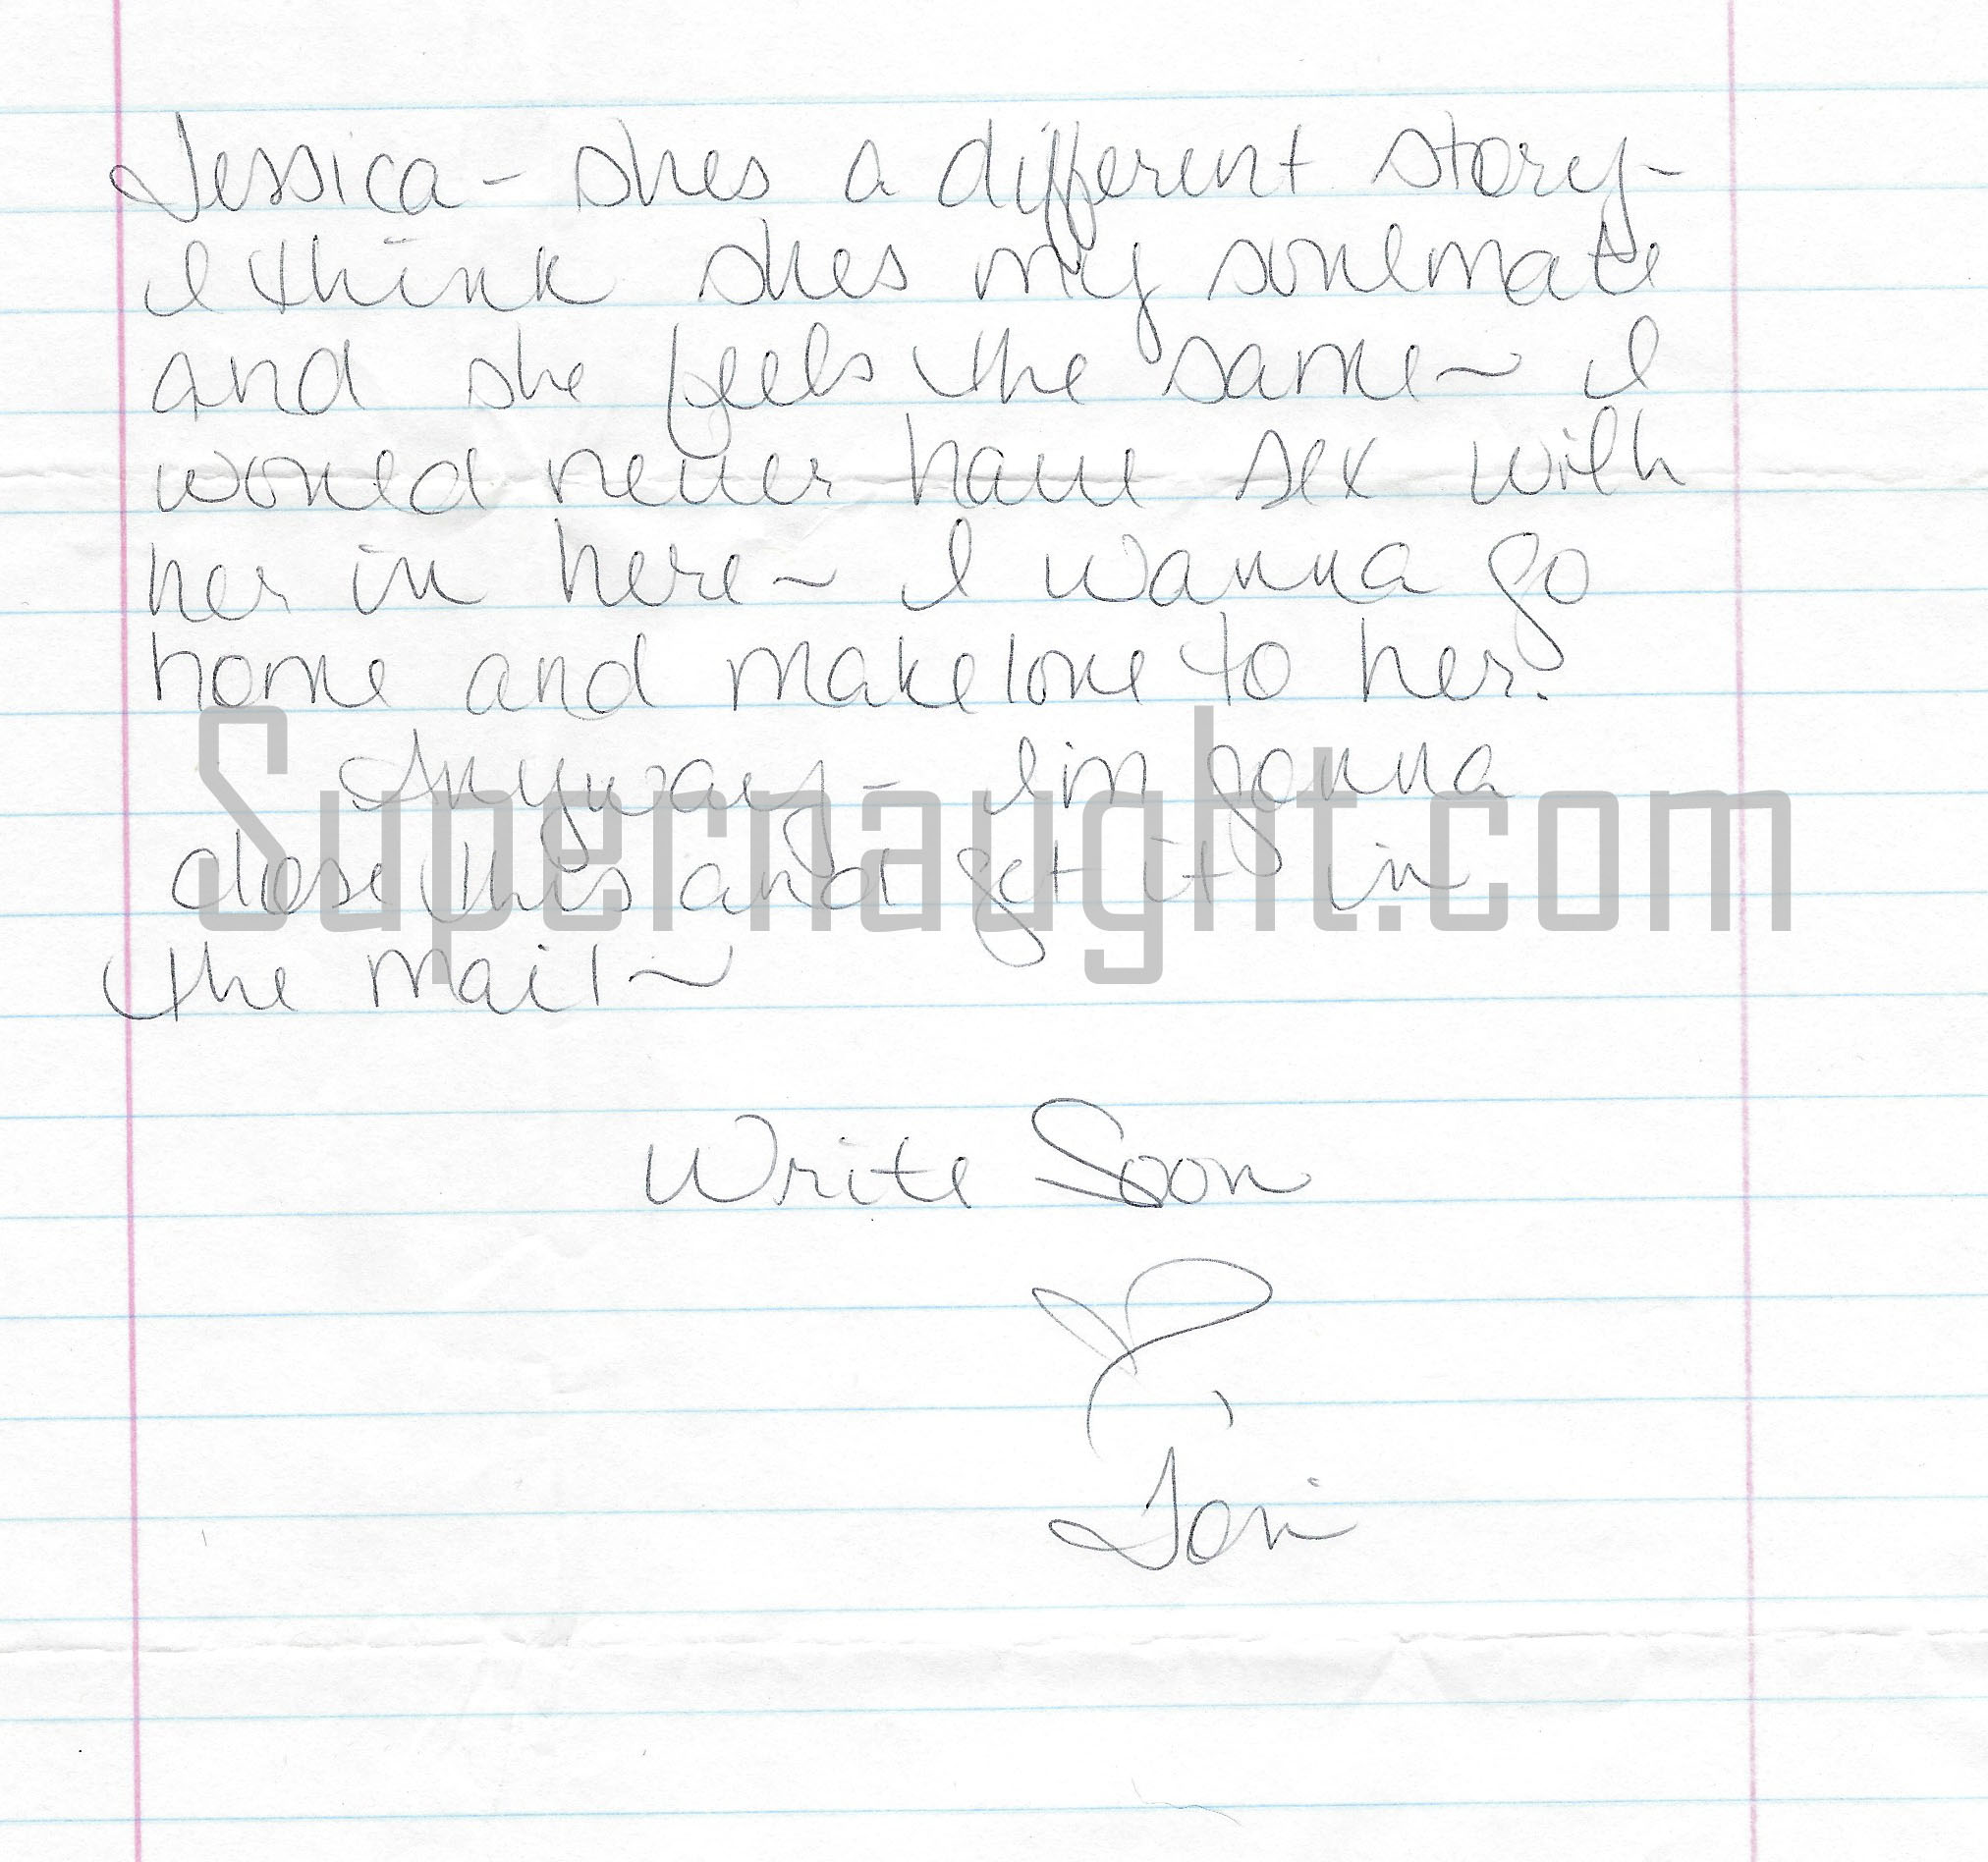 Jessica - shes a different story -
I think shes my soulmate
and she feels the same ~ I
would never have sex with
her in here ~ I wanna go
home and make love to her.
Anyway - I'm gonna
close this and get it in
the mail ~
Supernaught.com
Write Soon
Tori